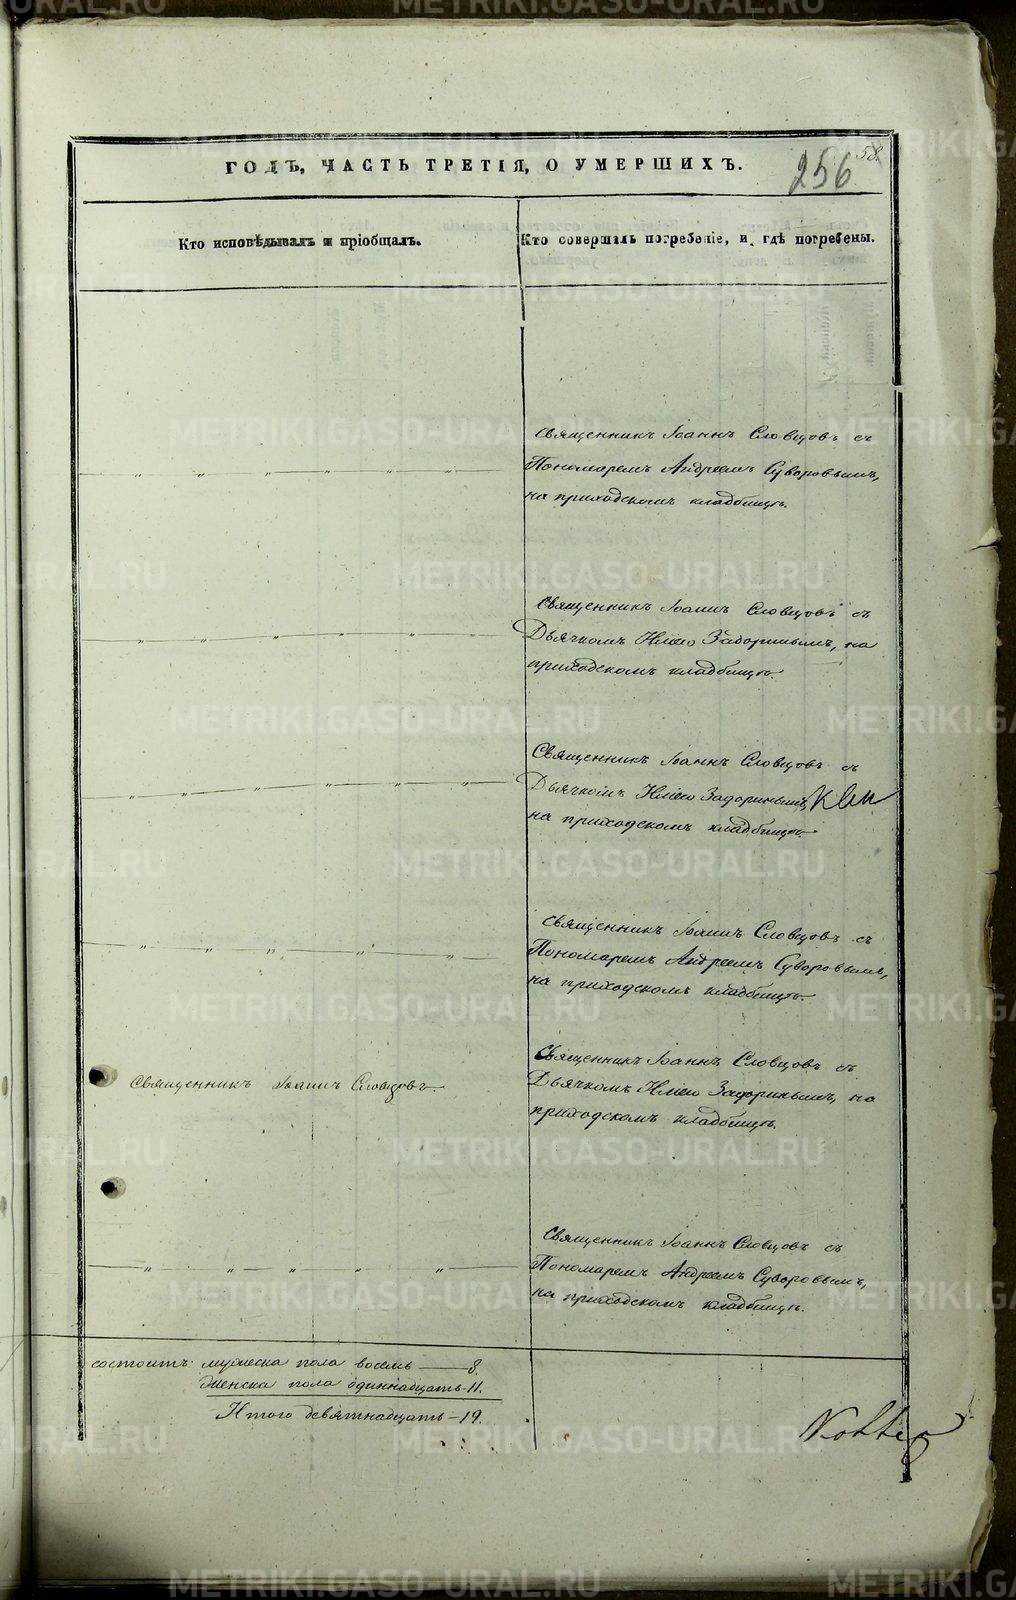 ГОДЪ, ЧАСТЬ ТРЕТІЯ, О УМЕРШИХЪ.
256
58
Кто исповѣдывалъ и пріобщалъ.
Кто совершалъ погребеніе, и гдѣ погребены.
Священникъ Іоаннъ Словцовъ съ
Пономаремъ Андреемъ Суворовымъ,
на приходскомъ кладбищѣ.
Священникъ Іоаннъ Словцовъ съ
Дьячкомъ Иліею Задоринымъ, на
приходскомъ кладбищѣ.
Священникъ Іоаннъ Словцовъ съ
Дьячкомъ Иліею Задоринымъ,
на приходскомъ кладбищѣ.
Священникъ Іоаннъ Словцовъ съ
Пономаремъ Андреемъ Суворовымъ,
на приходскомъ кладбищѣ.
Священникъ Іоаннъ Словцовъ
Священникъ Іоаннъ Словцовъ съ
Дьячкомъ Иліею Задоринымъ, на
приходскомъ кладбищѣ.
Священникъ Іоаннъ Словцовъ съ
Пономаремъ Андреемъ Суворовымъ,
на приходскомъ кладбищѣ.
состоитъ: мужеска пола восемь — 8.
женска пола одиннадцать – 11.
Итого девятнадцать – 19.
METRIKI.GASO-URAL.RU